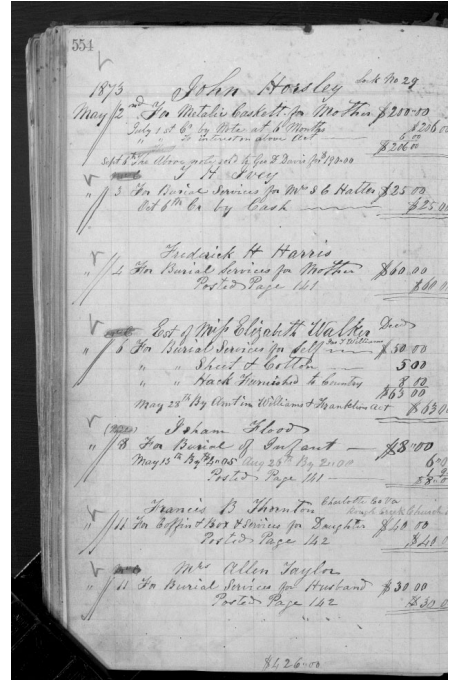 554
1873 John Horsley Lock No 29
May 2nd For Metalic Caskett for Mother $200.00
July 1st Cr by Note at 6 Months $206.00
" " To interest on above Act 6.00
$206.00
Sept 8th The Above note sold to Geo D Davis for 190.00
T H Ivey
" 3 For Burial Services for Mrs S C Hatter $25.00
Oct 6th Cr by Cash $25.00
Frederick H Harris
" 4 For Burial Services for Mother $60.00
Posted Page 141 $60.00
Est of Miss Elizabeth Walker Decd
" 6 For Burial Services for Self Williams $50.00
" " Sheet & Cotton 5.00
" " Hack Furnished to Country 8.00
$63.00
May 28th By Amt in Williams & Franklin Act $63.00
Isham Flood
" 8 For Burial of Infant $8.00
May 13th By Aug 26th By 2.00
Posted Page 141 $8.00
Francis B Thornton Charlotte Co Va
Rough Creek Church
" 11 For Coffin & Box & Services for Daughter $40.00
Posted Page 142 $40.0
Mrs Allen Taylor
" 11 For Burial Services for Husband $30.00
Posted Page 142 $30.0
$426.00